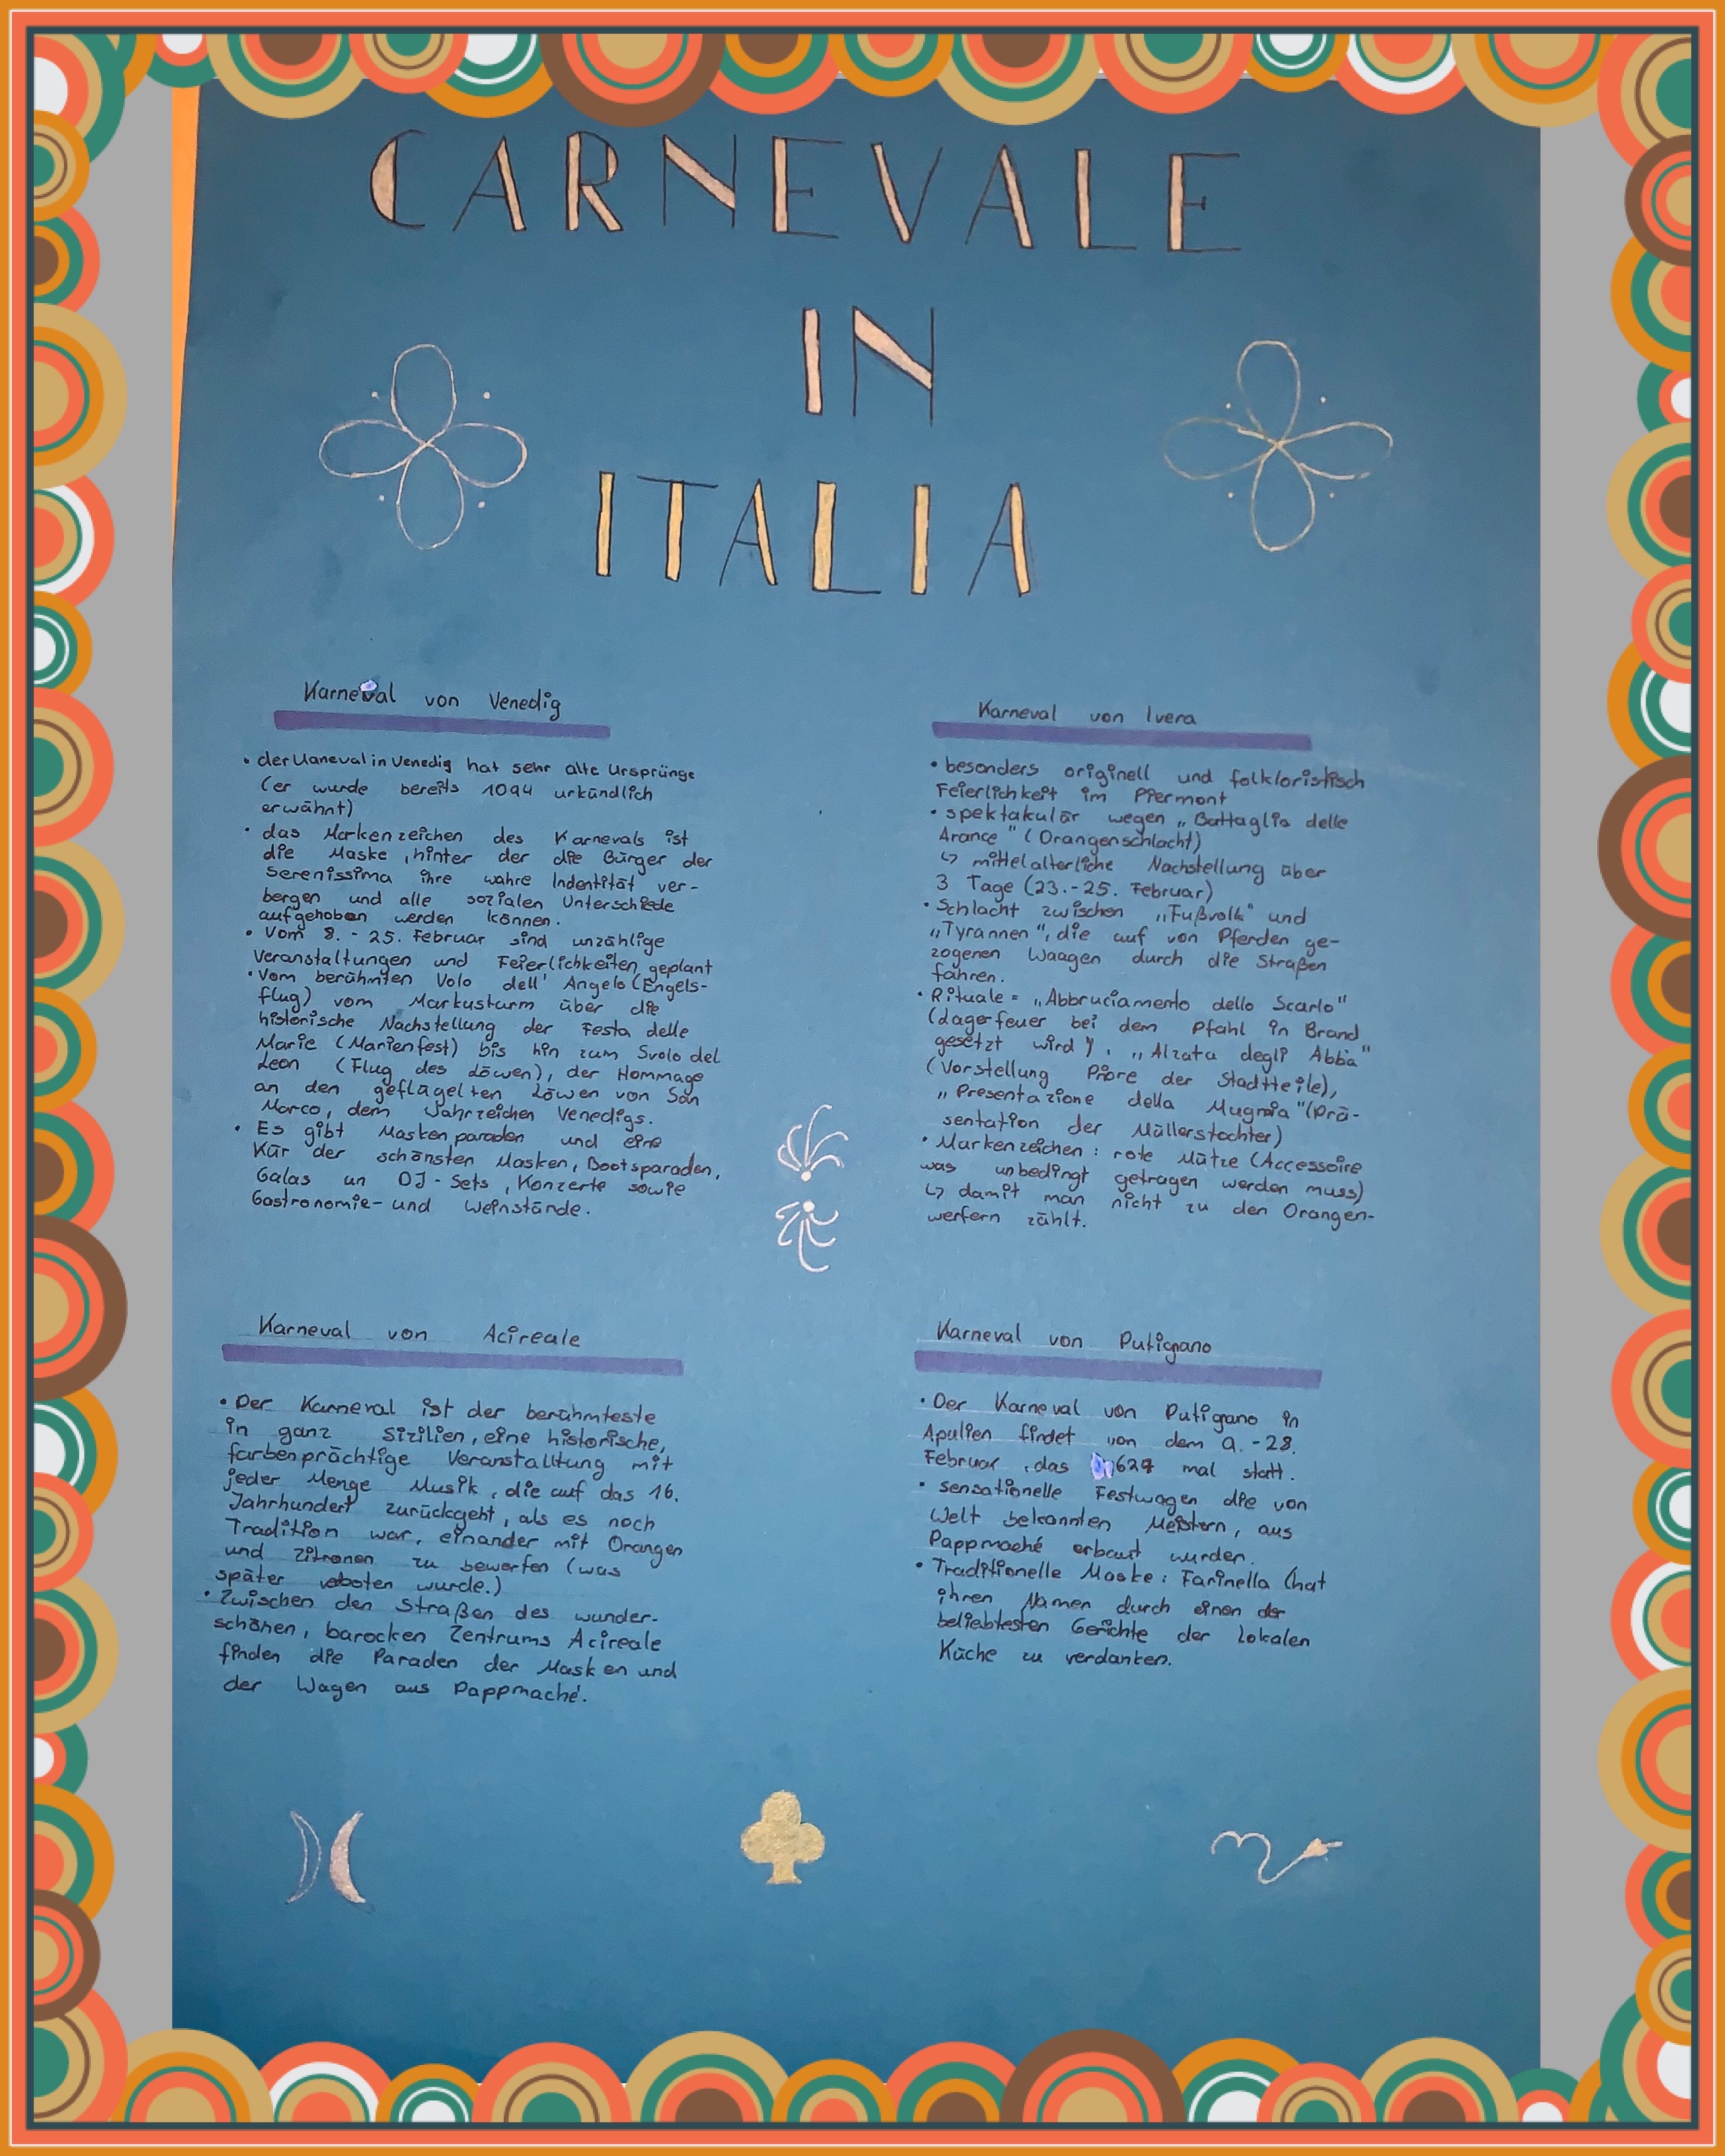 CARNEVALE
IN
ITALIA
Karneval von Venedig
• der Uaneval in Venedig hat sehr alte Ursprünge
(er wurde bereits 1094 urkundlich
erwähnt)
• das Markenzeichen des Karnevals ist
die Maske, hinter der die Bürger der
Serenissima ihre wahre Indentität ver-
bergen und alle sozialen Unterschiede
aufgehoben werden können.
• Vom 8. - 25. Februar sind unzählige
Veranstaltungen und Feierlichkeiten geplant
• Vom berühmten Volo dell' Angelo (Engels-
flug) vom Markusturm über die
historische Nachstellung der Festa delle
Marie (Marienfest) bis hin zum Svolo del
Leon (Flug des Löwen), der Hommage
an den geflügelten Löwen von San
Marco, dem Wahrzeichen Venedigs.
• Es gibt Maskenparaden und eine
Kür der schönsten Masken, Bootsparaden,
Galas un DJ - Sets, Konzerte sowie
Gastronomie- und Weinstände.
Karneval von Ivera
• besonders originell und folkloristisch
Feierlichkeit im Piermont
• spektakulär wegen „Battaglia delle
Arance" (Orangenschlacht)
↳ mittelalterliche Nachstellung über
3 Tage (23. - 25. Februar)
• Schlacht zwischen „Fußvolk" und
„Tyrannen", die auf von Pferden ge-
zogenen Waagen durch die Straßen
fahren.
• Rituale = „Abbruciamento dello Scarlo"
(Lagerfeuer bei dem Pfahl in Brand
gesetzt wird), „Alzata degli Abba"
(Vorstellung Priore der Stadtteile),
„Presentazione della Mugnaia" (Prä-
sentation der Müllerstochter)
• Markenzeichen: rote Mütze (Accessoire
was unbedingt getragen werden muss)
↳ damit man nicht zu den Orangen-
werfern zählt.
Karneval von Acireale
• Der Karneval ist der berühmteste
in ganz Sizilien, eine historische,
farbenprächtige Veranstalltung mit
jeder Menge Musik, die auf das 16.
Jahrhundert zurückgeht, als es noch
Tradition war, einander mit Orangen
und Zitronen zu bewerfen (was
später veboten wurde.)
• Zwischen den Straßen des wunder-
schönen, barocken Zentrums Acireale
finden die Paraden der Masken und
der Wagen aus Pappmaché.
Karneval von Putignano
• Der Karneval von Putignano in
Apulien findet von dem 9. - 28.
Februar, das 627 mal statt.
• sensationelle Festwagen die von
Welt bekannten Meistern, aus
Pappmaché erbaut wurden.
• Traditionelle Maske: Farinella (hat
ihren Namen durch einen der
beliebtesten Gerichte der lokalen
Küche zu verdanken.